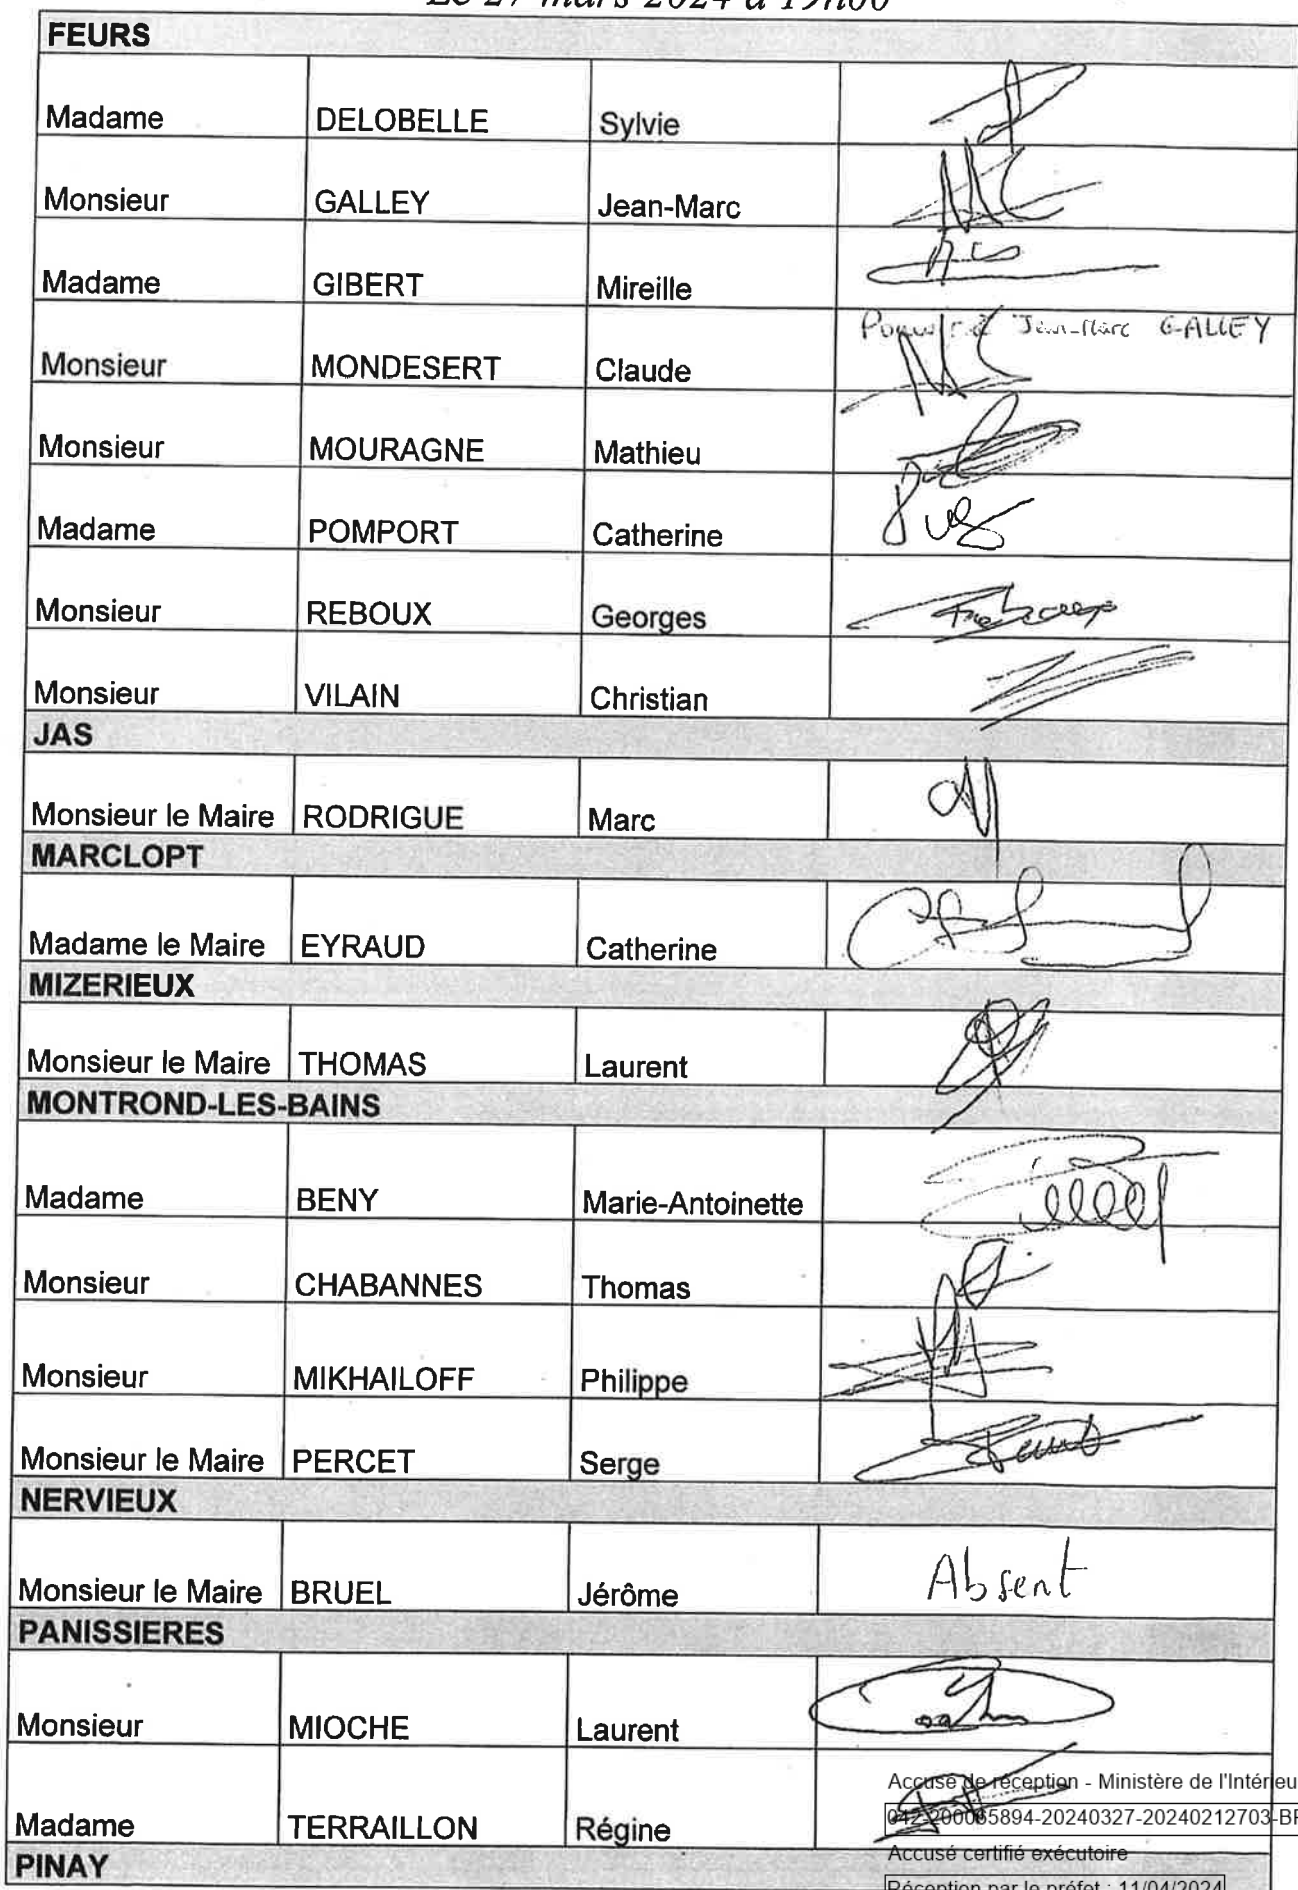 Le 27 mars 2024 à 19h00
FEURS
Madame DELOBELLE Sylvie
Monsieur GALLEY Jean-Marc
Madame GIBERT Mireille
Jean-Marc GALLEY
Monsieur MONDESERT Claude
Monsieur MOURAGNE Mathieu
Madame POMPORT Catherine
Monsieur REBOUX Georges
Monsieur VILAIN Christian
JAS
Monsieur le Maire RODRIGUE Marc
MARCLOPT
Madame le Maire EYRAUD Catherine
MIZERIEUX
Monsieur le Maire THOMAS Laurent
MONTROND-LES-BAINS
Madame BENY Marie-Antoinette
Monsieur CHABANNES Thomas
Monsieur MIKHAILOFF Philippe
Monsieur le Maire PERCET Serge
NERVIEUX
Monsieur le Maire BRUEL Jérôme Absent
PANISSIERES
Monsieur MIOCHE Laurent
Accusé de réception - Ministère de l'Intérieu
042-200065894-20240327-20240212703-B
Madame TERRAILLON Régine
Accusé certifié exécutoire
PINAY
Réception par le préfet : 11/04/2024